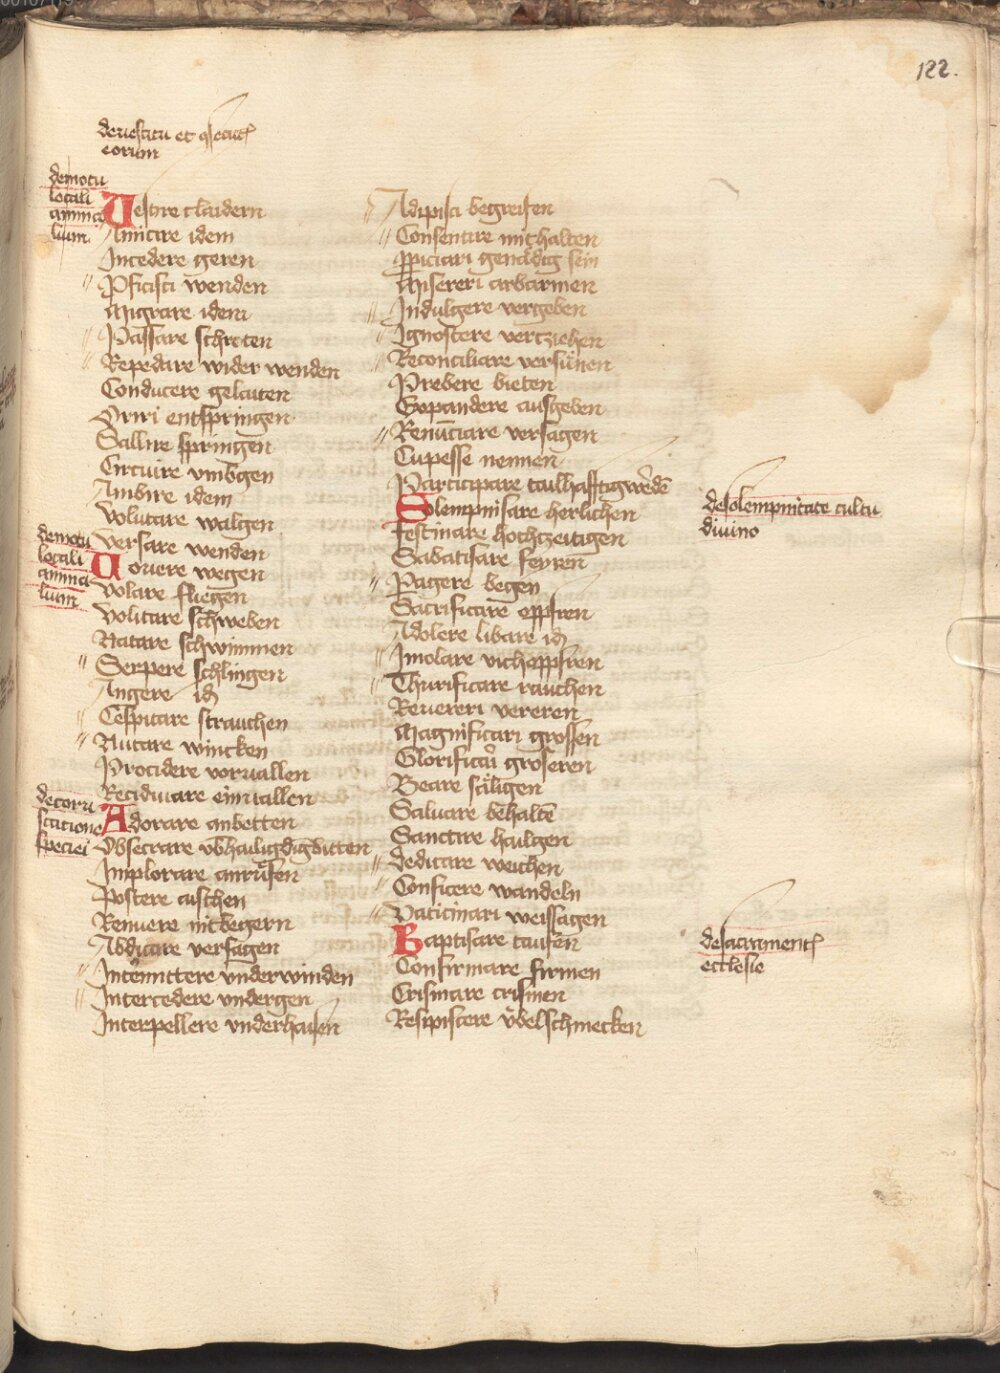 122.
de vestitu et
eorum
de motu
locali
anima
lium
Vestire claidern
Amicire idem
Incedere geren
Pficisci wenden
Migrare idem
Passare schreten
Repedare wider wenden
Conducere gelaiten
Oriri entspringen
Sallire springen
Circuire vmbgen
Ambire idem
Volutare walgen
Versare wenden
de motu
locali
anima
lium
Mouere wegen
Volare fliegen
Volitare schweben
Natare schwimmen
Serpere schlingen
Angere id
Cespitare strauchen
Nutare wincken
Procidere vorvallen
Recidiuare einvallen
Adorare anbetten
Obsecrare
Implorare anrufen
Poscere aischen
Renuere nit begern
Abdicare versagen
Intermittere vnderwinden
Intercedere vndergen
Interpellere
Adipisci begreifen
Consentire mithalten
Ppiciari genadig sein
Misereri arbarmen
Indulgere vergeben
Ignoscere vertziehen
Reconciliare versunen
Prebere bieten
Expandere ausgeben
Renunciare versagen
Cupesse nemen
Participare
Solempnisare herlichen
Festinare hochtzeitigen
Sabatisare feyren
Pagere begen
Sacrificare opffren
Adolere libare id
Imolare vichoppfren
Thurificare rauchen
Reuereri vereren
Magnificari grossen
Glorificari groseren
Beare saligen
Saluare behalten
Sanctire hailgen
Dedicare weichen
Conficere wandeln
Vaticinari weissagen
de solempnitate cultu
diuino
Baptisare taufen
Confirmare firmen
Crismare crismen
Resipiscere vbelschmecken
de sacrament
ecclesie